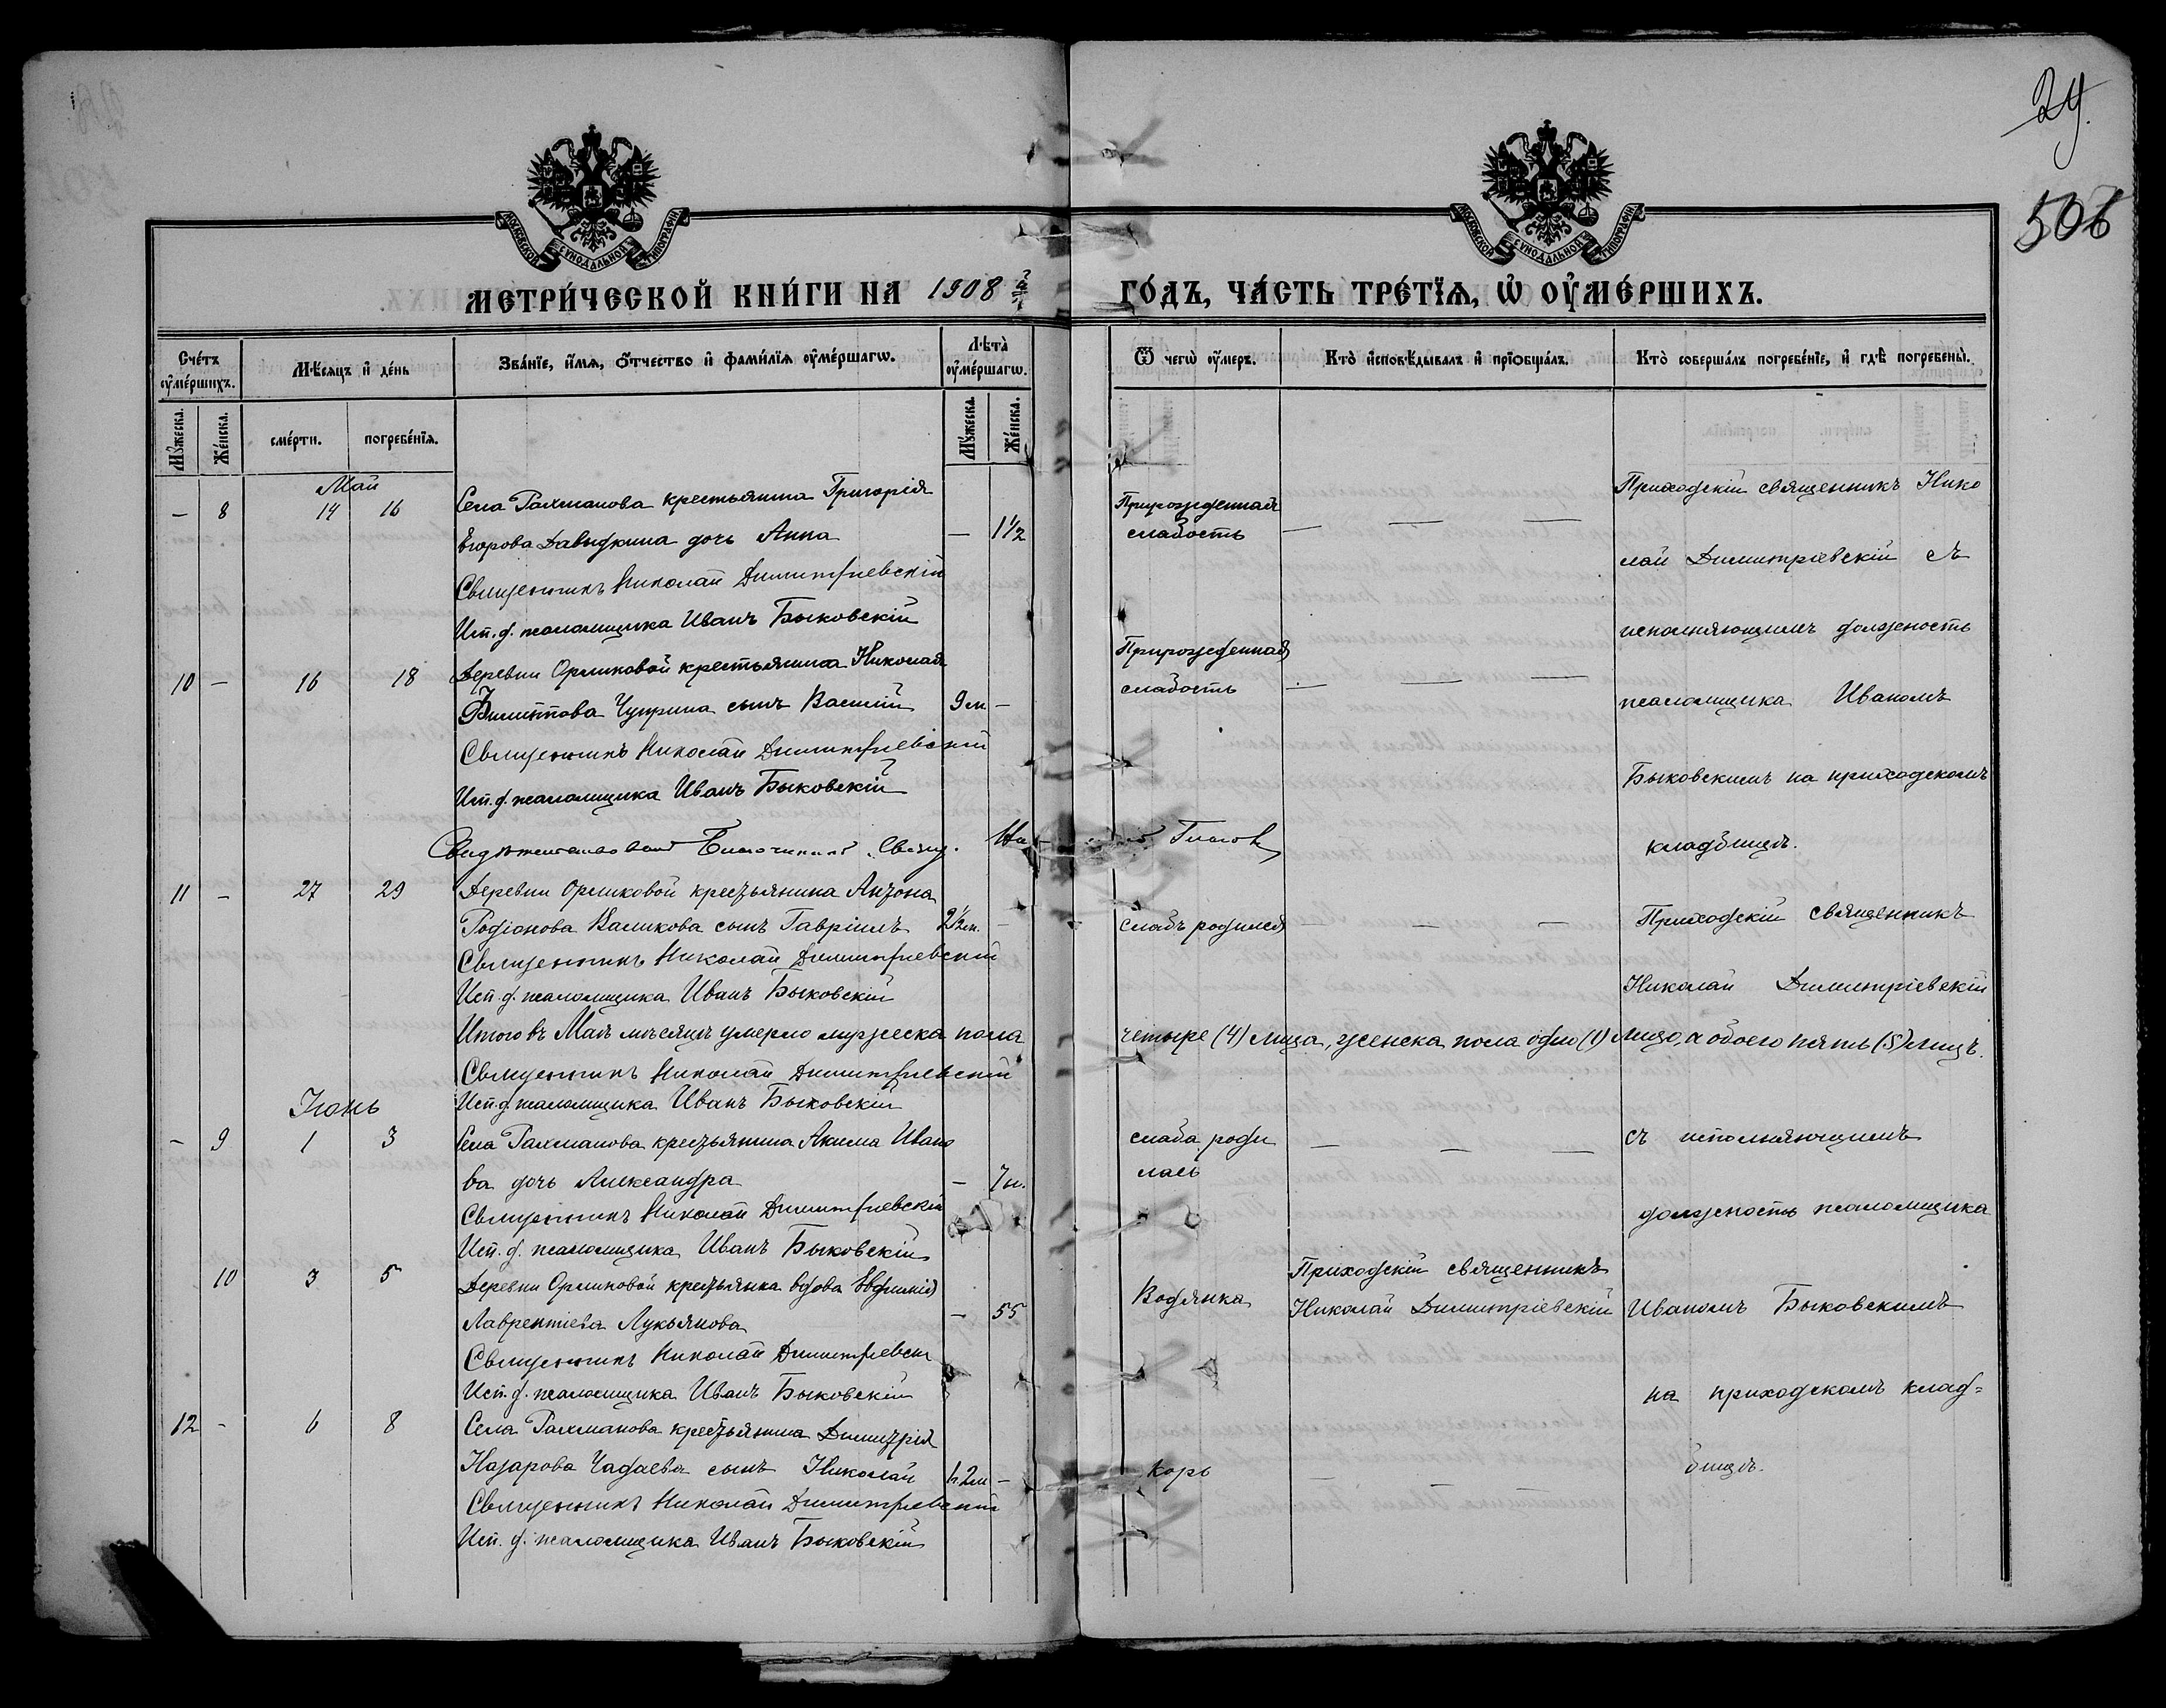 24.
506
МОСКОВСКОЙ СѴНОДАЛЬНОЙ ТИПОГРАФІИ
МОСКОВСКОЙ СѴНОДАЛЬНОЙ ТИПОГРАФІИ
МЕТРИ́ЧЕСКОЙ КНИ́ГИ НА 1908 й
ГО́ДЪ, ЧА́СТЬ ТРЕ́ТЇѦ, Ѽ ОУ҆МЕ́РШИХЪ.
Сче́тъ оу҆ме́ршихъ.
Мѣ́сяцъ и҆ де́нь
Зва́нїе, и҆́мѧ, ѻ҆́тчество и҆ фами́лїѧ оу҆ме́ршагѡ.
Лѣта̀ оу҆ме́ршагѡ.
Ѿ чегѡ̀ оу҆́меръ.
Кто̀ и҆сповѣ́дывалъ и҆ прїѡбща́лъ.
Кто̀ соверша́лъ погребе́нїе, и҆ гдѣ̀ погребены̀.
Мꙋ́жеска.
Же́нска.
сме́рти.
погребе́нїѧ.
Мꙋ́жеска.
Же́нска.
Май
– 8 14 16 Села Рахманова крестьянина Григорія
Егорова Давыдкина дочь Анна – 1½
Священникъ Николай Димитріевскій
Исп. д. псаломщика Иванъ Быковскій
Прирожденная
слабость — — —
Приходскій священникъ Нико
лай Димитріевскій съ
исполняющимъ должность
псаломщика Иваномъ
Быковскимъ на приходскомъ
кладбищѣ.
10 – 16 18 Деревни Орликовой крестьянина Николая
Филиппова Чуприна сынъ Василій 9 м –
Священникъ Николай Димитріевскій
Исп. д. псаломщика Иванъ Быковскій
Прирожденная
слабость — — —
Свидѣтельствовалъ Благочинный Свящ.
11 – 27 29 Деревни Орликовой крестьянина Антона
Родіонова Валикова сынъ Гавріилъ 2½ м. –
Священникъ Николай Димитріевскій
Исп. д. псаломщика Иванъ Быковскій
слабъ родился — — —
Приходскій священникъ
Николай Димитріевскій
Итого въ Маѣ мѣсяцѣ умерло мужеска пола четыре (4) лица, женска пола одно (1) лицо, а обоего пять (5) лицъ.
Священникъ Николай Димитріевскій
Исп. д. псаломщика Иванъ Быковскій
Іюнь
– 9 1 3 Села Рахманова крестьянина Акима Ивано
ва дочь Александра –
Священникъ Николай Димитріевскій
Исп. д. псаломщика Иванъ Быковскій
слаба роди
лась — — —
съ исполняющимъ
должность псаломщика
10 3 5 Деревни Орликовой крестьянка вдова Евфимія
Лаврентіева Лукьянова – 55
Священникъ Николай Димитріевск
Исп. д. псаломщика Иванъ Быковскій
Водянка
Приходскій священникъ
Николай Димитріевскій
Иваномъ Быковскимъ
на приходскомъ клад=
бищѣ.
12 – 6 8 Села Рахманова крестьянина Димитрія
Назарова Чадаева сынъ Николай –
Священникъ Николай Димитріевскій
Исп. д. псаломщика Иванъ Быковскій
корь — — —